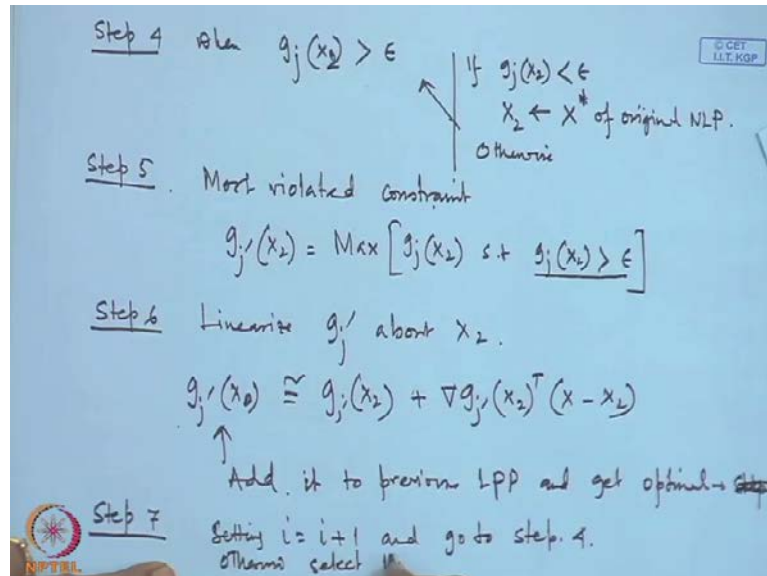 Step 4 When gj(x2) > ϵ
If gj(x2) < ϵ
x2 ← x* of original NLP.
Otherwise
© CET
I.I.T. KGP
Step 5. Most violated constraint
gj'(x2) = Max [gj(x2) s.t gj(x2) > ϵ]
Step 6 Linearize gj' about x2.
gj'(x) ≅ gj'(x2) + ∇gj'(x2)ᵀ (x - x2)
↑
Add it to previous LPP and get optimal →
Step 7 Setting i = i+1 and go to step. 4.
select
NPTEL